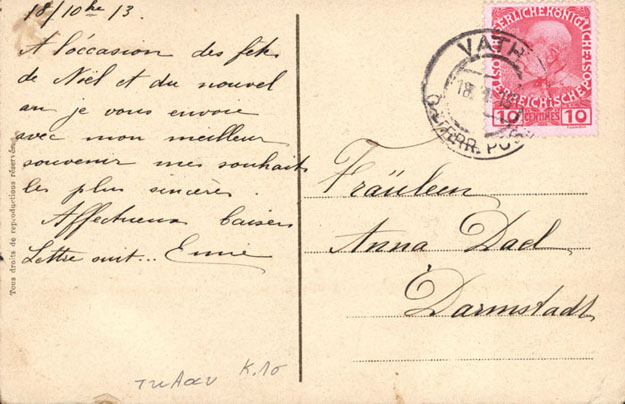 18/10bre 13
A l'occasion des fêtes
de Noël et du nouvel
an je vous envoie
avec mon meilleur
souvenir mes souhaits
les plus sincères.
Affectueux baisers
Lettre suit...
Tous droits de reproductions réservés
VATH
18.
ÖSTERR. POST
KAISERLICHE KÖNIGLICHE
ÖSTERREICHISCHE POST
10 CENTIMES 10
Fräulein
Anna Dael
Darmstadt
K.10